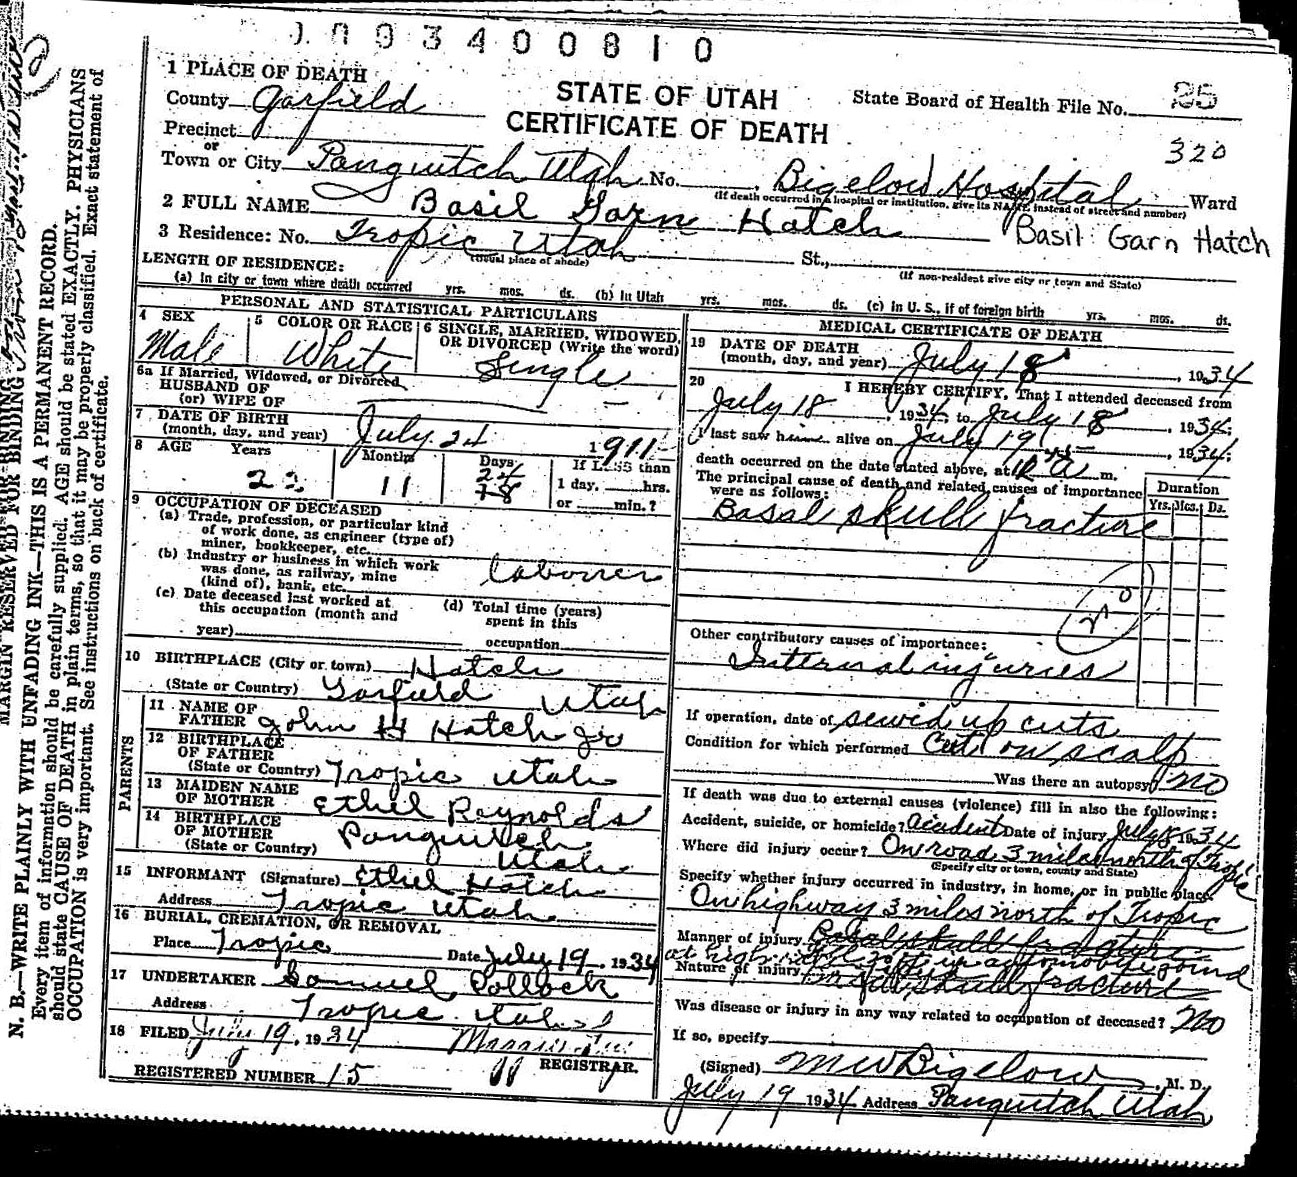 1 0 9 3 4 0 0 8 1 0
1 PLACE OF DEATH
STATE OF UTAH
CERTIFICATE OF DEATH
State Board of Health File No. 25
320
County Garfield
Precinct
or
Town or City Panguitch Utah No. Bigelow Hospital Ward
(If death occurred in a hospital or institution, give its NAME instead of street and number)
2 FULL NAME Basil Garn Hatch
Basil Garn Hatch
3 Residence: No. Tropic Utah St.,
(Usual place of abode)
(If non-resident give city or town and State)
LENGTH OF RESIDENCE:
(a) In city or town where death occurred yrs. mos. ds. (b) In Utah yrs. mos. ds. (c) In U. S., if of foreign birth yrs. mos. ds.
PERSONAL AND STATISTICAL PARTICULARS
4 SEX
Male
5 COLOR OR RACE
White
6 SINGLE, MARRIED, WIDOWED, OR DIVORCED (Write the word)
Single
6a If Married, Widowed, or Divorced
HUSBAND OF
(or) WIFE OF
7 DATE OF BIRTH
(month, day, and year) July 24 1911
8 AGE Years Months Days If LESS than
22 11 24 1 day, hrs.
18 or min.?
9 OCCUPATION OF DECEASED
(a) Trade, profession, or particular kind
of work done, as engineer (type of)
miner, bookkeeper, etc.
(b) Industry or business in which work
was done, as railway, mine
(kind of), bank, etc. laborer
(c) Date deceased last worked at
this occupation (month and
year)
(d) Total time (years)
spent in this
occupation
10 BIRTHPLACE (City or town) Hatch
(State or Country) Garfield Utah
PARENTS
11 NAME OF
FATHER John H Hatch Jr
12 BIRTHPLACE
OF FATHER
(State or Country) Tropic Utah
13 MAIDEN NAME
OF MOTHER Ethel Reynolds
14 BIRTHPLACE
OF MOTHER
(State or Country) Panguitch
Utah
15 INFORMANT (Signature) Ethel Hatch
Address Tropic Utah
16 BURIAL, CREMATION, OR REMOVAL
Place Tropic Date July 19, 1934
17 UNDERTAKER Samuel Pollock
Address Tropic Utah
18 FILED July 19, 1934
REGISTRAR.
REGISTERED NUMBER 15
MEDICAL CERTIFICATE OF DEATH
19 DATE OF DEATH
(month, day, and year) July 18, 1934
20 I HEREBY CERTIFY, That I attended deceased from
July 18, 1934, to July 18, 1934;
I last saw him alive on July 19, 1934;
death occurred on the date stated above, at m.
The principal cause of death and related causes of importance
were as follows:
Duration
Yrs. Mos. Ds.
Basal skull fracture
Other contributory causes of importance:
Internal injuries
If operation, date of sewed up cuts
Condition for which performed Cut on scalp
Was there an autopsy? no
If death was due to external causes (violence) fill in also the following:
Accident, suicide, or homicide? Accident Date of injury July 18, 1934
Where did injury occur? On road 3 miles north of Tropic
(Specify city or town, county and State)
Specify whether injury occurred in industry, in home, or in public place.
On highway 3 miles north of Tropic
Manner of injury Basal skull fracture
Nature of injury Basal skull fracture
Was disease or injury in any way related to occupation of deceased? No
If so, specify
(Signed) M W Bigelow, M. D.
July 19 1934 Address Panguitch Utah
MARGIN RESERVED FOR BINDING
N. B.—WRITE PLAINLY WITH UNFADING INK—THIS IS A PERMANENT RECORD.
Every item of information should be carefully supplied. AGE should be stated EXACTLY. PHYSICIANS
should state CAUSE OF DEATH in plain terms, so that it may be properly classified. Exact statement of
OCCUPATION is very important. See instructions on back of certificate.